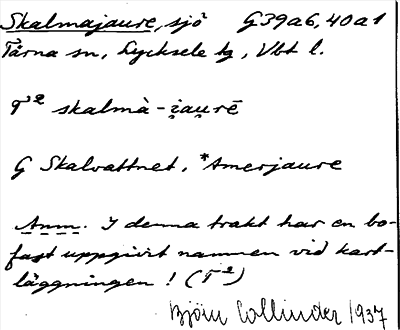 Skalmajaure, sjö G39a6, 40a1
Tärna sn, Lycksele lg, Vbt l.
T² skalmà-i̯au̯rē
G Skalvattnet, *Amerjaure
Anm. I denna trakt har en bo-
fast uppgivit namnen vid kart-
läggningen! (T²)
Björn Collinder 1937